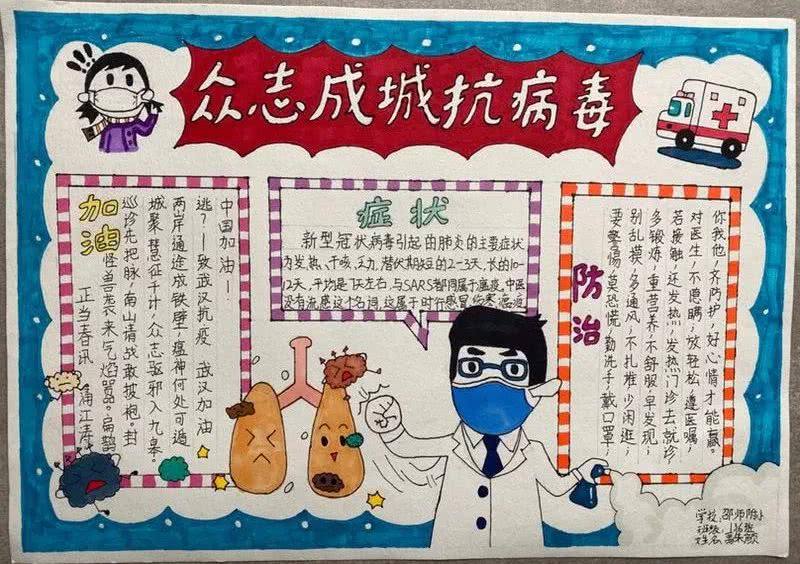 众志成城抗病毒
加油
正当春讯 涌江涛
怪兽袭来气焰嚣。扁鹊
巡诊先把脉,南山请战敢披袍。封
城聚慧征千计,众志驱邪入九皋。
两岸通途成铁壁,瘟神何处可遁
逃?——致武汉抗疫 武汉加油
中国加油—!
症状
新型冠状病毒引起的肺炎的主要症状
为发热、干咳、乏力,潜伏期短的2-3天,长的10-
12天,平均是7天左右,与SARS都同属于瘟疫,中医
没有流感这个名词,这属于时行感冒伤寒,瘟疫
防治
要警惕,莫恐慌,勤洗手,戴口罩,
别乱摸,多通风,不扎堆,少闲逛,
多锻炼,重营养,不舒服,早发现,
若接触,还发热,发热门诊去就诊,
对医生,不隐瞒,放轻松,遵医嘱,
你我他,齐防护,好心情才能赢。
学校:邵师附小
班级:
姓名: